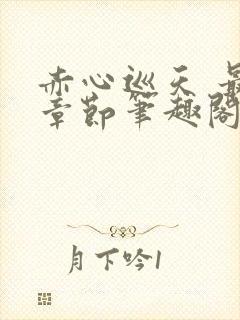 赤心巡天 最
章節筆趣閣
月下吟1